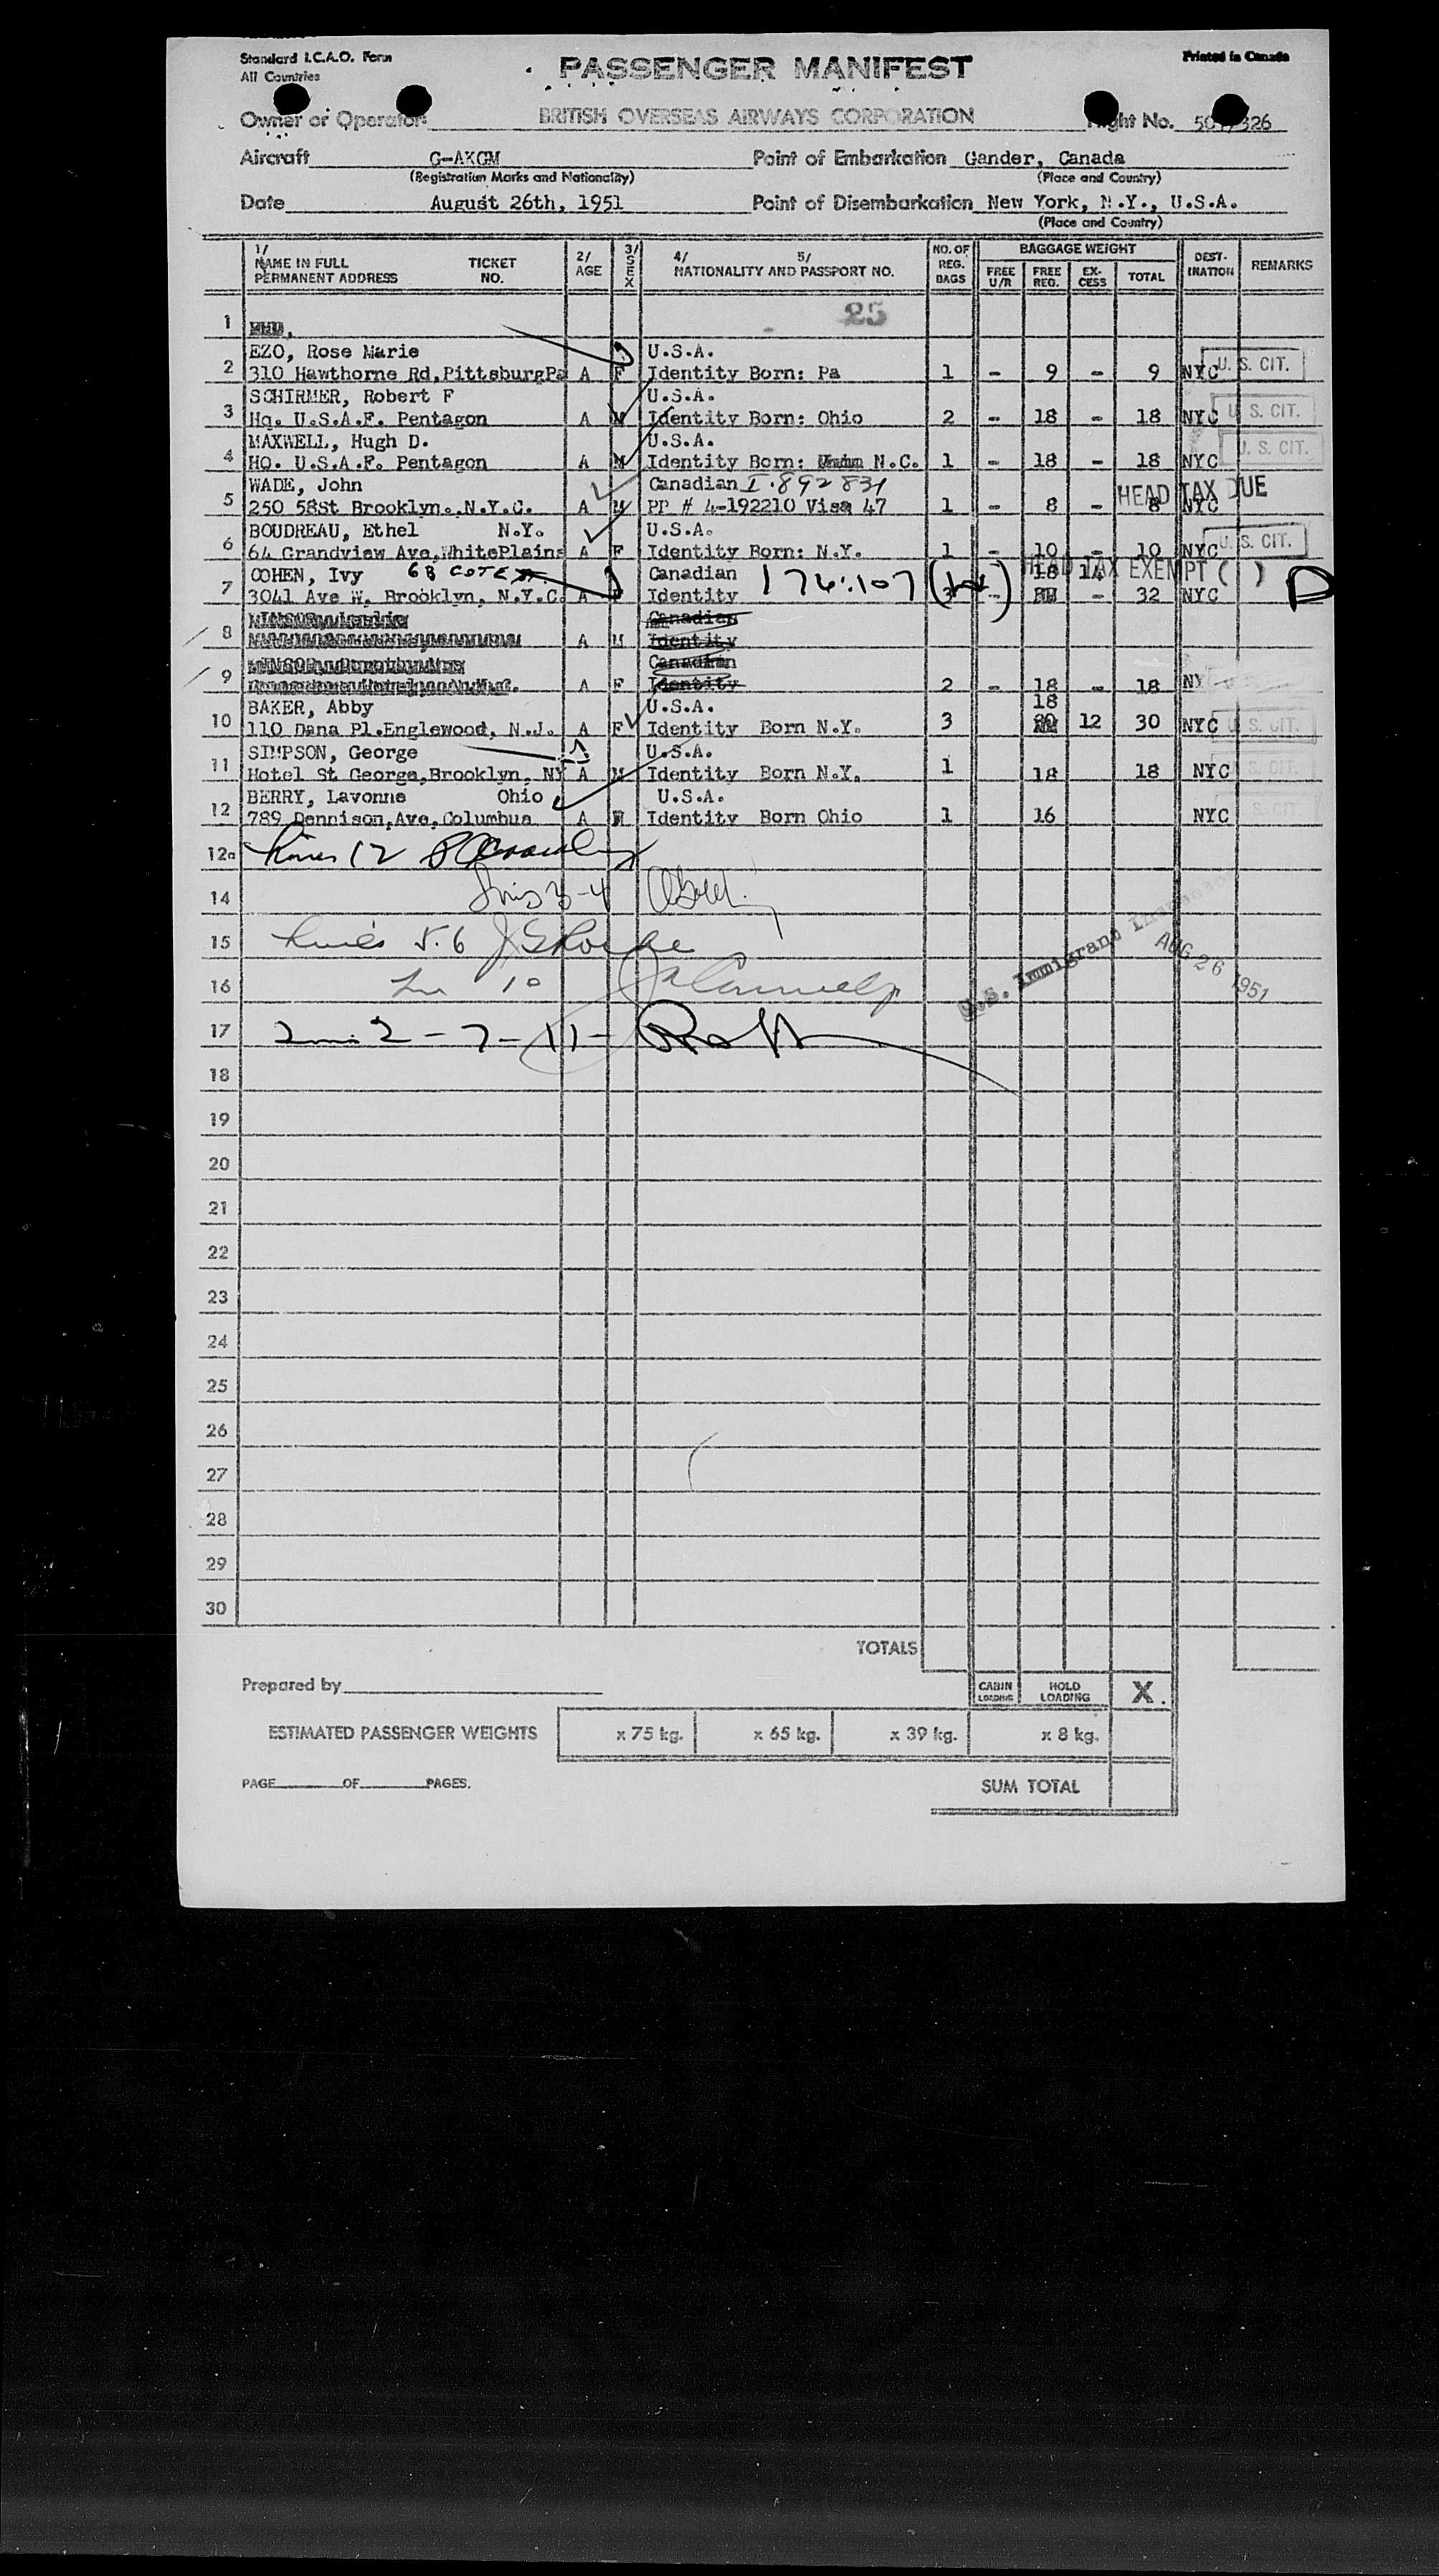 Standard I.C.A.O. Form
All Countries
PASSENGER MANIFEST
Printed in Canada
Owner or Operator
BRITISH OVERSEAS AIRWAYS CORPORATION
Flight No. 326
Aircraft G-AKGM
(Registration Marks and Nationality)
Point of Embarkation Gander, Canada
(Place and Country)
Date August 26th, 1951
Point of Disembarkation New York, N.Y., U.S.A.
(Place and Country)
1/ NAME IN FULL PERMANENT ADDRESS TICKET NO. 2/ AGE 3/ SEX 4/ 5/ NATIONALITY AND PASSPORT NO. NO. OF REG. BAGS BAGGAGE WEIGHT FREE U/R FREE REG. EX-CESS TOTAL DEST-INATION REMARKS
1 25
EZO, Rose Marie U.S.A.
2 310 Hawthorne Rd,PittsburgPa A F Identity Born: Pa 1 - 9 - 9 NYC U. S. CIT.
SCHIRMER, Robert F U.S.A.
3 Hq. U.S.A.F. Pentagon A M Identity Born: Ohio 2 - 18 - 18 NYC U. S. CIT.
MAXWELL, Hugh D. U.S.A.
4 HQ. U.S.A.F. Pentagon A M Identity Born: N.C. 1 - 18 - 18 NYC U. S. CIT.
WADE, John Canadian I-892831 HEAD TAX DUE
5 250 58St Brooklyn. N.Y.C. A M PP # 4-192210 Visa 47 1 - 8 - 8 NYC
BOUDREAU, Ethel N.Y. U.S.A.
6 64 Grandview Ave,WhitePlains A F Identity Born: N.Y. 1 - 10 - 10 NYC U. S. CIT.
COHEN, Ivy Canadian 18 14 HEAD TAX EXEMPT ( )
7 3041 Ave W. Brooklyn, N.Y.C. A Identity 176:107 3 - - 32 NYC
Canadian
8 A M Identity
Canadian
9 A F Identity 2 - 18 - 18 NY
BAKER, Abby U.S.A. 18
10 110 Dana Pl.Englewood, N.J. A F Identity Born N.Y. 3 12 30 NYC U. S. CIT.
SIMPSON, George U.S.A.
11 Hotel St George,Brooklyn, NY A M Identity Born N.Y. 1 18 18 NYC S. CIT.
BERRY, Lavonne Ohio U.S.A.
12 789 Dennison,Ave,Columbus A Identity Born Ohio 1 16 NYC S. CIT.
12a Lines 12
14 Lines 3-4
15 Lines 5.6
16 10
17 2-7-11-
U.S. Immigrant
AUG 26 1951
18
19
20
21
22
23
24
25
26
27
28
29
30
TOTALS
Prepared by
CABIN LOADING HOLD LOADING X.
ESTIMATED PASSENGER WEIGHTS x 75 kg. x 65 kg. x 39 kg. x 8 kg.
PAGE OF PAGES.
SUM TOTAL